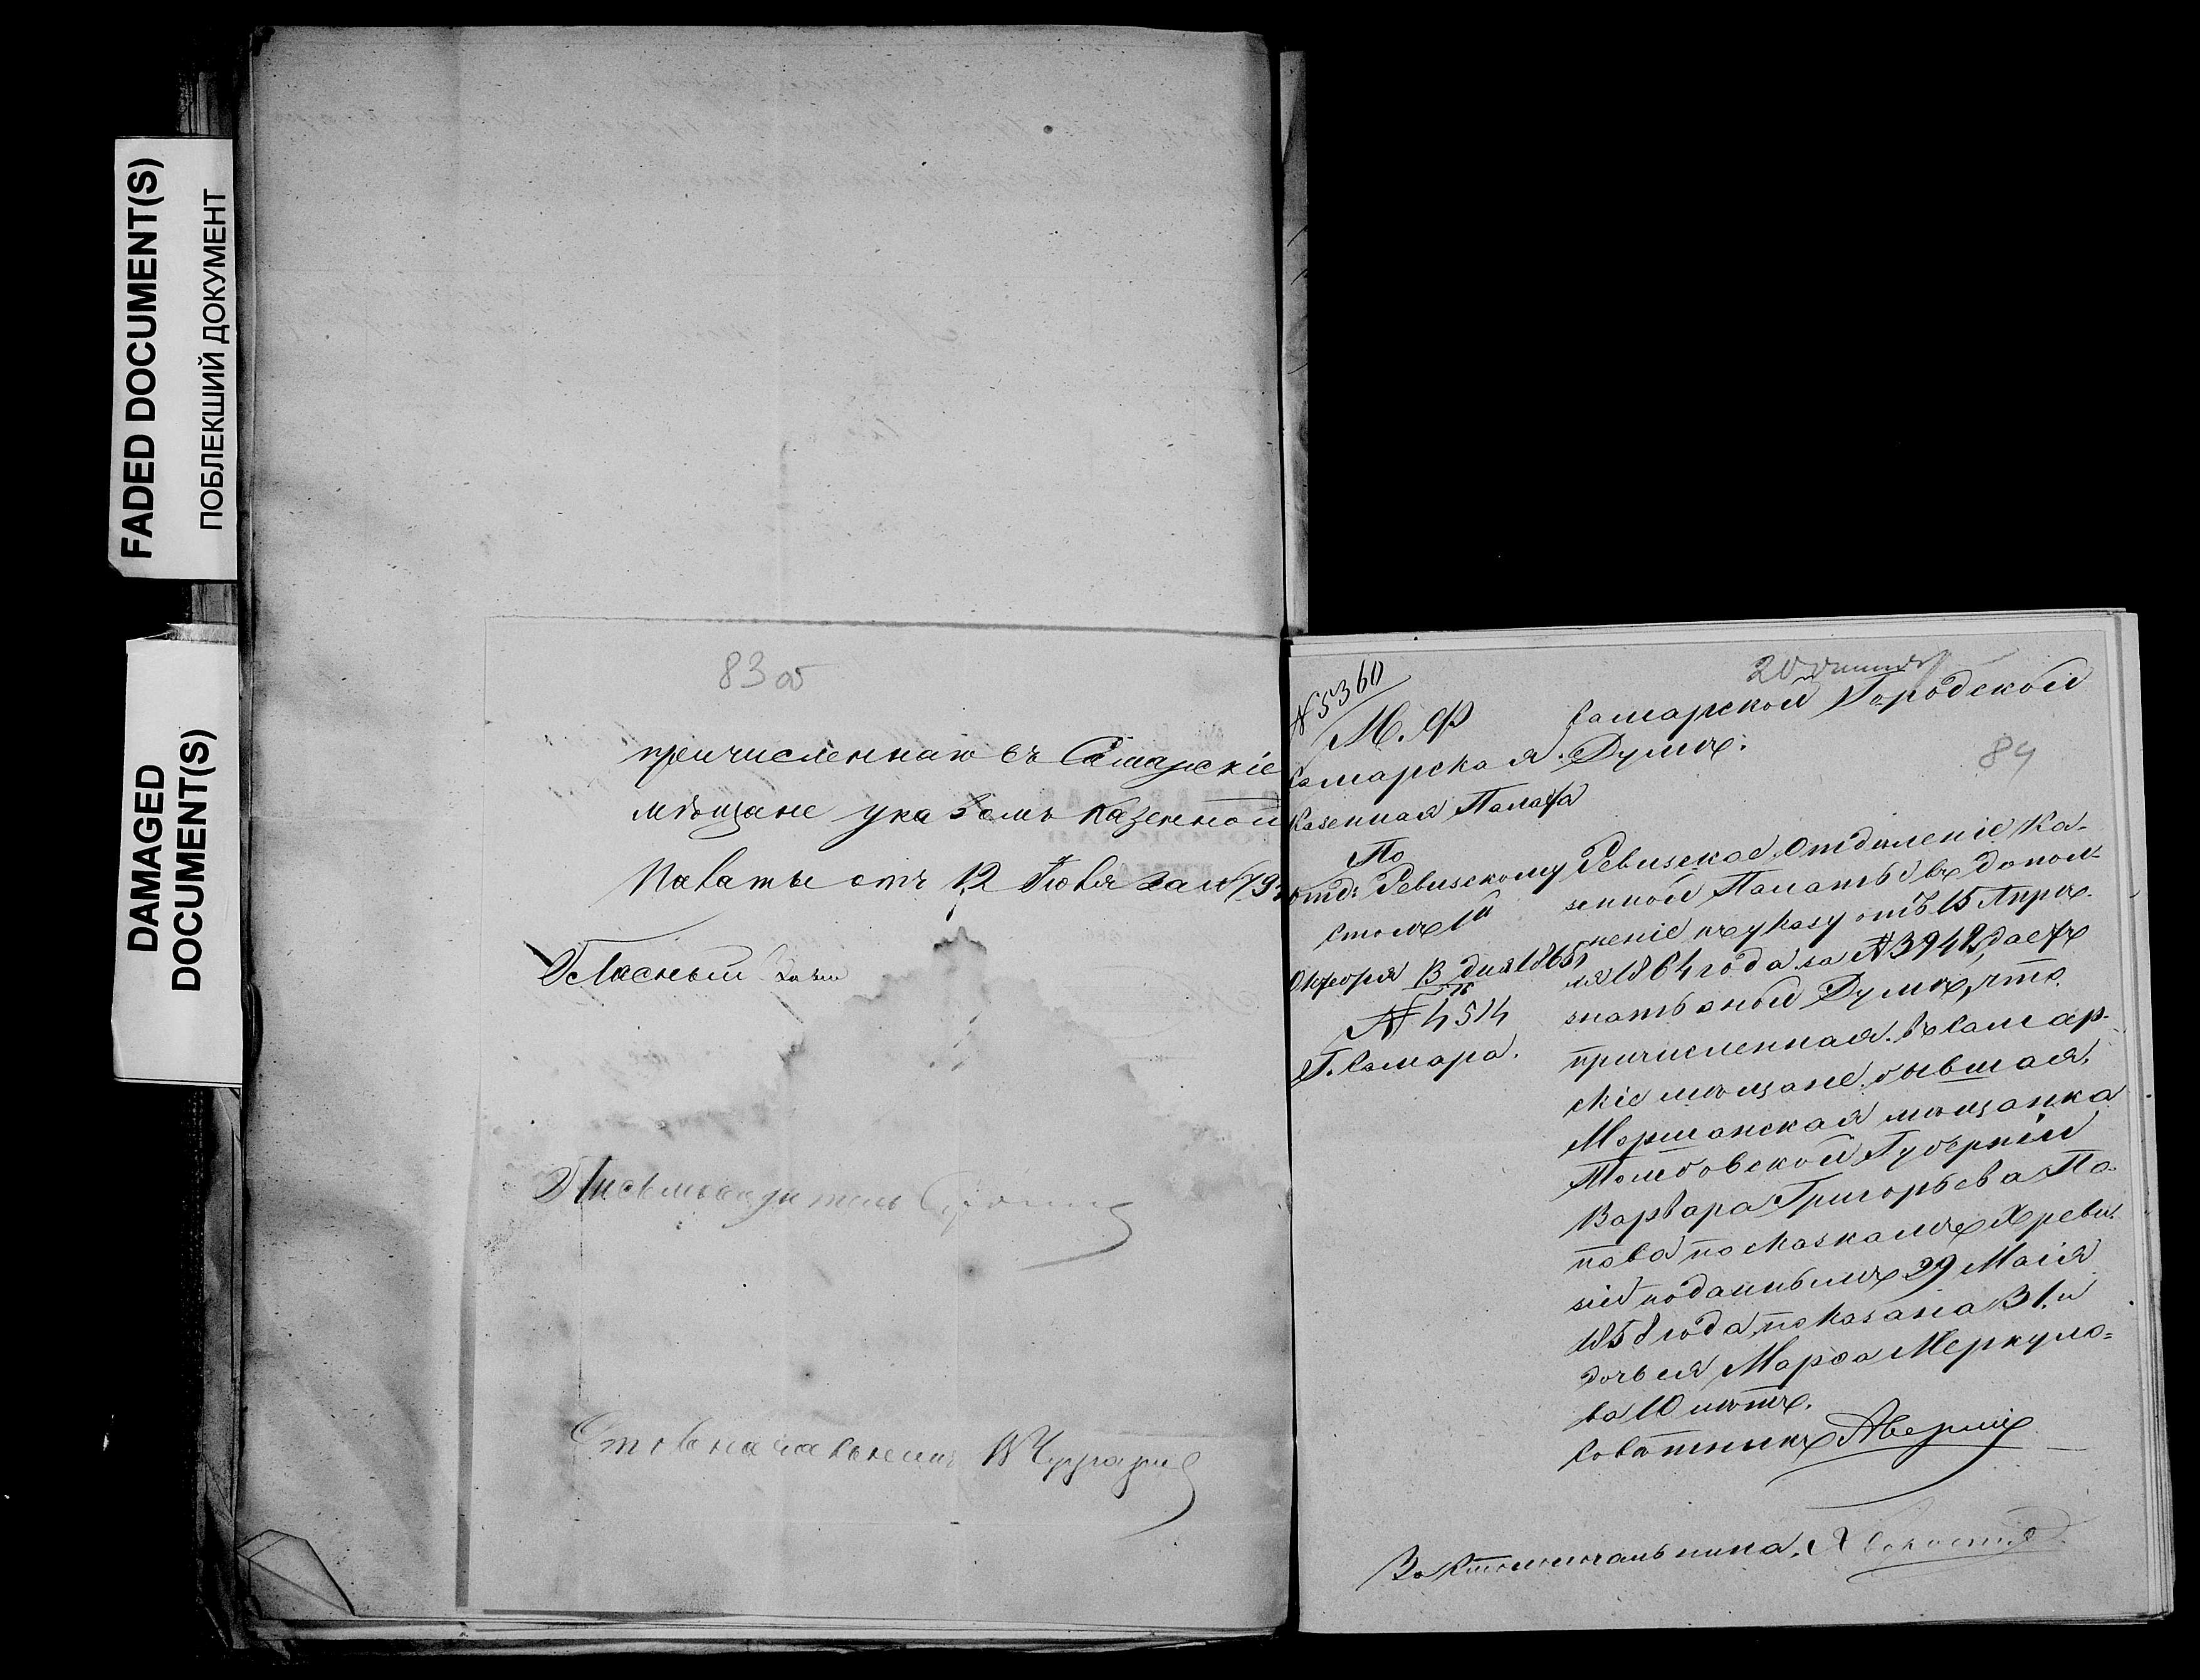 FADED DOCUMENT(S)
ПОБЛЕКШИЙ ДОКУМЕНТ
DAMAGED
DOCUMENT(S)
83 об
причисленнаго въ Самарскіе
мѣщане указомъ Казенной
Палаты отъ 12 Іюля за №
Гласный
Письмоводитель
Столоначальникъ
№ 5360
М. Ф.
Самарская
Казенная Палата
По
отд: Ревизскому
Столъ 1й
Октября 13 дня 1865
№ 4514
Г. Самара.
20
Самарской Городской
Думѣ.
84
Ревизское Отдѣленіе Ка-
зенной Палаты въ допол-
неніе къ указу отъ 15 Апрѣ-
ля 1864 года за № 3948, даетъ
знать оной Думѣ, что
причисленная въ Самар-
скіе мѣщане бывшая
Моршанская мѣщанка
Тамбовской Губерніи
Варвара Григорьева По-
пова по сказкамъ X реви-
зіи поданнымъ 29 Маія
1858 года показана 31. и
дочь ея Марѳа Меркуло-
ва 10 лѣтъ.
Совѣтникъ
За Столоначальника